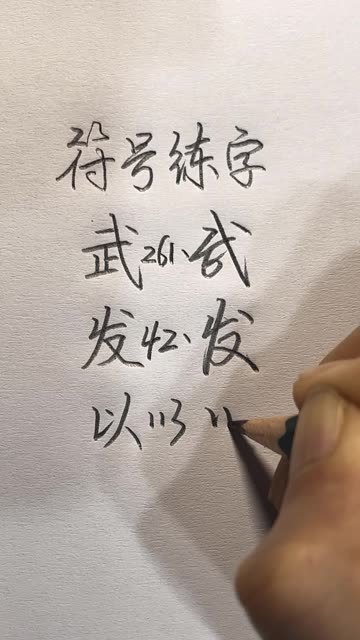 符号练字
武261、武
发42、发
以113